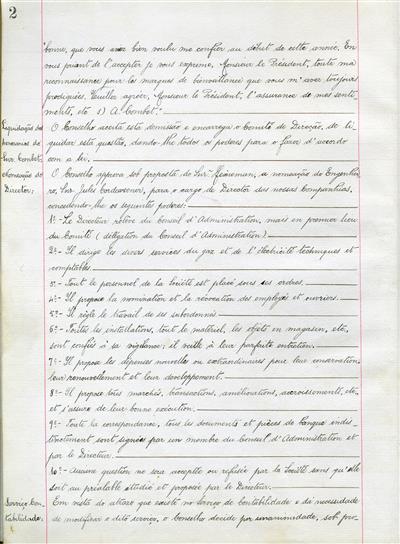 2
bonne, que vous avez bien voulu me confier au début de cette année. En
vous priant de l'accepter je vous exprime, Monsieur le Président, toute ma
reconnaissance pour les marques de bienveillance que vous m'avez toujours
prodiguées. Veuillez agréer, Monsieur le Président, l'assurance de mes senti-
ments, etc s) A. Combet."
Liquidação dos
Snr. Combet;
nomeação do
Director;
O Conselho aceita esta demissão e encarrega o Comité de Direcção, de li-
quidar esta questão, dando-lhe todos os poderes para o fazer d'accordo
com a lei.
O Conselho approva sob proposta do Snr. Heineman, a nomeação do Engenhei-
ro, Snr. Jules Cordeweener, para o cargo de Director das nossas Companhias,
concedendo-lhe os seguintes poderes:
1º- Le Directeur relève du Conseil d'Administration, mais en premier lieu
du Comité (délégation du Conseil d'Administration)
2º- Il dirige les divers services du gaz et de l'électricité techniques et
comptables
3º- Tout le personnel de la Société est placé sous ses ordres.
4º- Il propose la nomination et la révocation des employés et ouvriers.
5º- Il règle le travail de ses subordonnés
6º- Toutes les installations, tout le matériel, les objets en magasin, etc,
sont confiés à sa vigilance; il veille à leur parfaite entretien.
7º- Il propose les dépenses nouvelles ou extraordinaires pour leur conservation
leur renouvellement et leur développement.
8º- Il propose tous marchés, transactions, améliorations, accroissements, etc,
et s'assure de leur bonne exécution.
9º- Toute la correspondance, tous les documents et pièces de banque indis-
tinctement sont signés par un membre du Conseil d'Administration et
par le Directeur.
10º- Aucune question ne sera acceptée ou refusée par la Société sans qu'elle
soit au préalable étudiée et proposée par le Directeur.
Serviço Con-
tabilidade.
Em vista do atrazo que existe no serviço de Contabilidade e da necessidade
de modificar o dito serviço, o Conselho decide por unanimidade, sob pro-